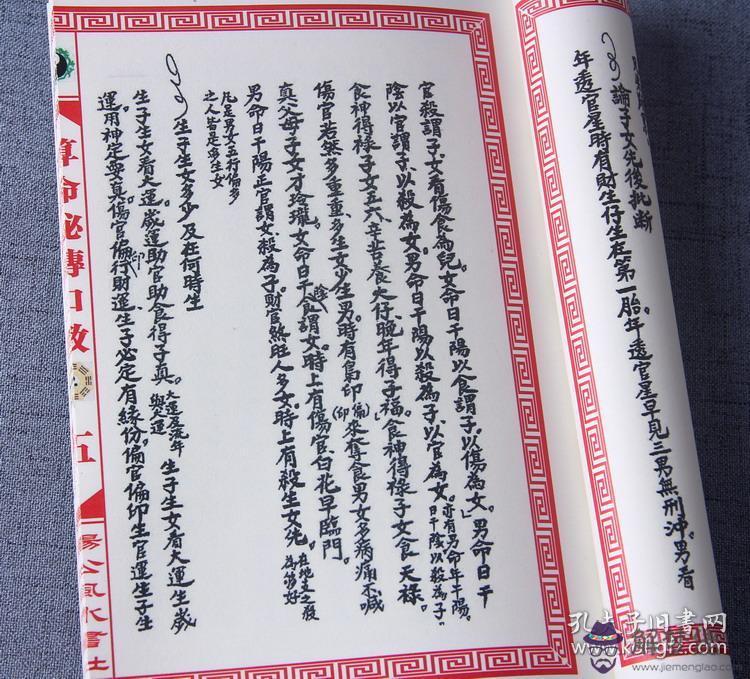 論子女先後批断
年透官星時有財生仔生在第一胎。年透官星早見三男無刑沖。男看
官殺謂子女看傷食為兒。女命日干陽以食謂子以傷為女。男命日干
陰以官謂子以殺為女。男命日干陽以殺為子以官為女。亦有男命年干陽。日干陰以殺為子。
食神得祿子女五六。辛苦養大仔晚年得子福。食神得祿子女食天祿。
傷官若然多重重、多生女少生男。時有梟印(偏印)來奪食男女多病痛不喊
真父母子女才玲瓏。女命日干陰食謂女。時上有傷官、白花早臨門。
男命日干陽正官謂女殺為子財官煞旺人多女。時上有殺生女先。在地支之殺為第好
凡是男女五行偏多
之人皆定多生女
生子生女多少及在何時生
生子生女看大運。歲運助官助食得子真。大運及流年與大運生子生女看大運生歲
運用神定要真。傷官偏印行財運生子必定有緣份。偏官偏印生官運生子生
算命秘傳口教
五
楊公風水書社
孔夫子旧書网
www.kongfz.com
www.jiemengliao.com